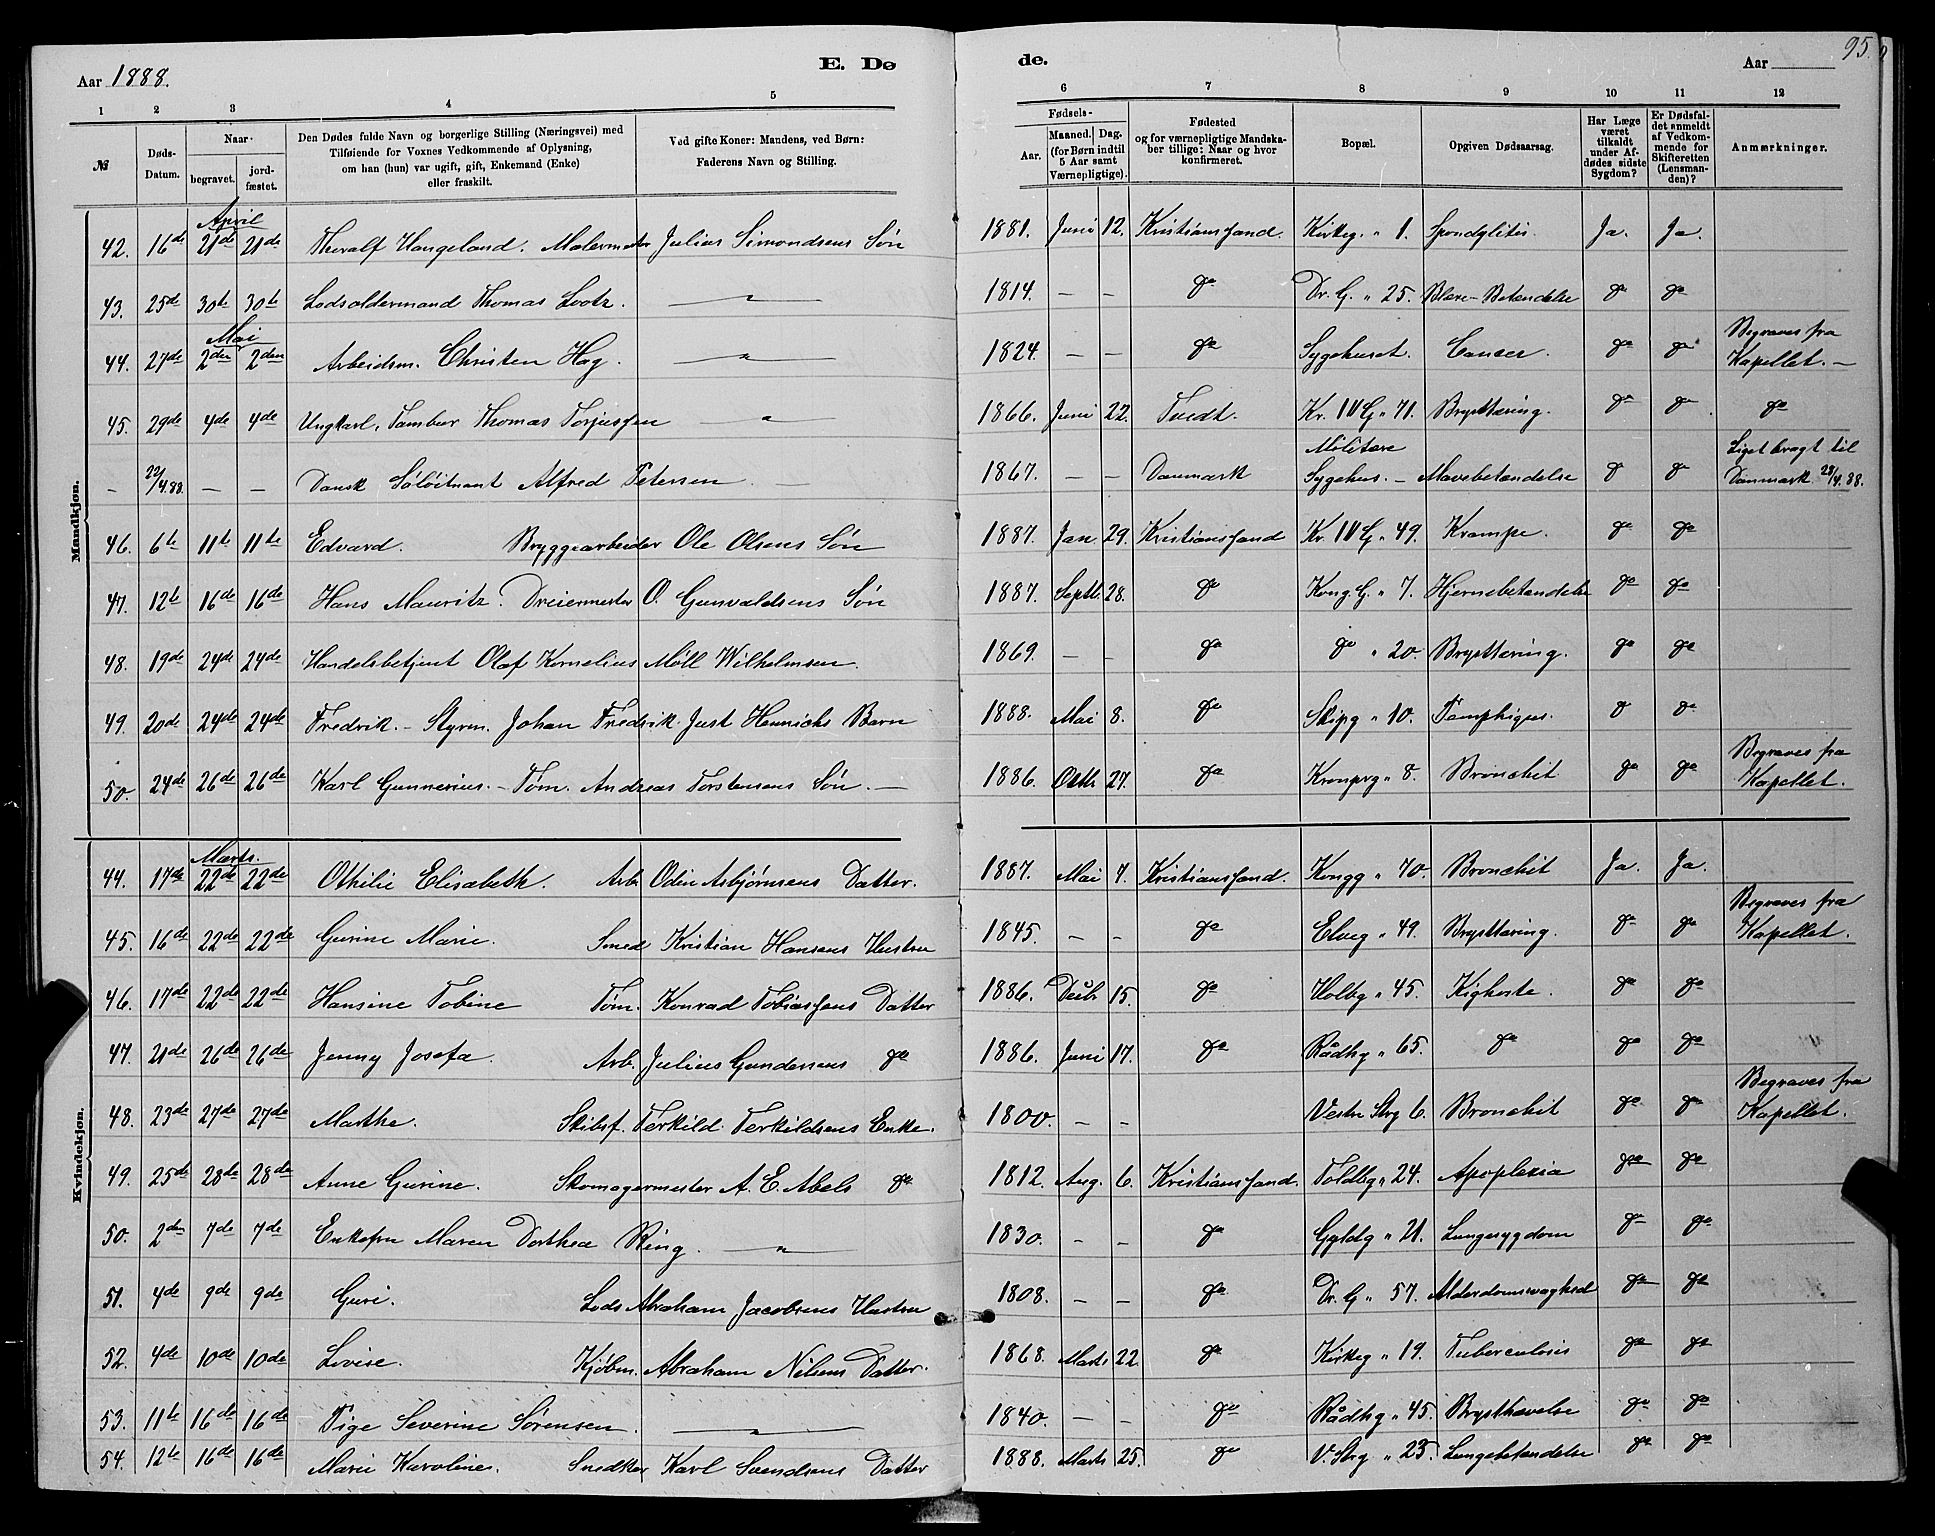 95.
Aar 1888.
E. Dø
de.
Aar
1 2 3 4 5 6 7 8 9 10 11 12
№
Døds-Datum.
Naar
begravet.
jord-fæstet.
Den Dødes fulde Navn og borgerlige Stilling (Næringsvei) med
Tilføiende for Voxnes Vedkommende af Oplysning,
om han (hun) var ugift, gift, Enkemand (Enke)
eller fraskilt.
Ved gifte Koner: Mandens, ved Børn:
Faderens Navn og Stilling.
Fødsels-
Aar.
Maaned. Dag.
(for Børn indtil
5 Aar samt
Værnepligtige).
Fødested
og for værnepligtige Mandska-
ber tillige: Naar og hvor
konfirmeret.
Bopæl.
Opgiven Dødsaarsag.
Har Læge
været
tilkaldt
under Af-
dødes sidste
Sygdom?
Er Dødsfal-
det anmeldt
af Vedkom-
mende for
Skifteretten
(Lensman-
den)?
Anmærkninger.
Mandkjøn.
April
42. 16de 21de 21de Thoralf Haugeland. Malermester Julius Simondsens Søn 1881. Juni 12. Kristianssand. Kirkeg. " 1. Spondylitis. Ja. Ja.
43. 25de 30te 30te Lodsoldermand Thomas Lootz. — " — 1814. — — do Dr. G. " 25. Blære-Betændelse do do
Mai
44. 27de 2den 2den Arbeidsm. Christen Hag. — " — 1824. — — do Sygehuset. Cancer. do do Begraves fra Kapellet. —
45. 29de 4de 4de Ungkarl, Tambur Thomas Torjussen — " — 1866. Juni 22. Tvedt. Kr. IV G " 71. Brysttæring. do do do
— 22/4.88. — — Dansk Søløitnant Alfred Petersen. — 1867. — — Danmark Militære Sygehus. — Mavebetændelse do do Liget bragt til Danmark 28/4.88.
46. 6te 11te 11te Edvard. Bryggearbeider Ole Olsens Søn 1887. Jan. 29. Kristianssand Kr. IV G " 49. Krampe. do do
47. 12te 16de 16de Hans Mauritz. Dreiermester O. Gunvaldsens Søn 1887. Septb 28. do Kong. G. " 7. Hjernebetændelse do do
48. 19de 24de 24de Handelsbetjent Olaf Kornelius Møll Wilhelmsen. 1869. — — do do " 20. Brysttæring. do do
49. 20de 24de 24de Fredrik. — Styrm. Johan Fredrik Just Henrichs Barn 1888. Mai 8. do Skipg " 10. Pemphigus. do do
50. 24de 26de 26de Karl Gunnerius. — Tøm. Andreas Torstensens Søn. — 1886. Octbr 27. do Kronprg " 8. Bronchit do do Begraves fra Kapellet.
Kvindekjøn.
Marts.
44. 17de 22de 22de Othilie Elisabeth. Arb. Odin Asbjørnsens Datter. 1887. Mai 7. Kristianssand. Kongg " 70. Bronchit Ja. Ja.
45. 16de 22de 22de Gurine Marie. Smed Kristian Hansens Hustru 1845. — — do Elveg " 49. Brysttæring. do do Begraves fra Kapellet.
46. 17de 22de 22de Hansine Tobine Tøm. Konrad Tobiassens Datter 1886. Decbr 15. do Holbg " 45. Kighoste. do do
47. 21de 26de 26de Jenny Josefa. Arb. Julius Gundersens do 1886. Juni 17. do Rådhg " 65. do do do
48. 23de 27de 27de Marthe. Skibsf. Terkild Terkildsens Enke. 1800. — — Vestre Strg 6. Bronchit do do Begraves fra Kapellet.
49. 25de 28de 28de Anne Gurine. Skomagermester A. E. Abels do 1812. Aug. 6. Kristianssand. Toldbg " 24. Apoplexia do do
50. 2den 7de 7de Enkefru Maren Dorthea Ring. — " 1830. — — do Gyldg " 21. Lungesygdom do do
51. 4de 9de 9de Guri. Lods Abraham Jacobsens Hustru 1808. — — do Dr. G " 57. Alderdomssvaghed do do
52. 4de 10de 10de Lovise. Kjøbm. Abraham Nilsens Datter. 1868. Marts 22. do Kirkeg " 19. Tuberculosis do do
53. 11te 16de 16de Pige Severine Sørensen. — " — 1840. — — do Rådhg " 45. Brysthævelse do do
54. 12te 16de 16de Marie Karoline. Snedker Karl Svendsens Datter 1888. Marts 25. do V. Strg " 23. Lungebetændelse do do